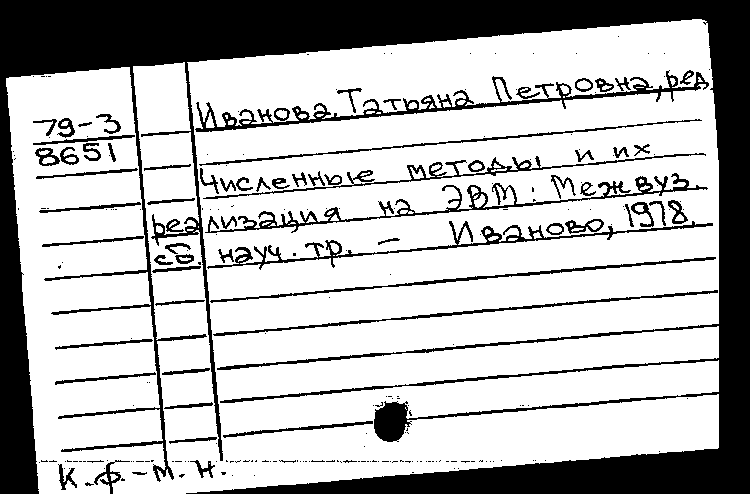 79-3
8651
Иванова, Татьяна Петровна, ред.
Численные методы и их
реализация на ЭВМ: Межвуз.
сб. науч. тр. – Иваново, 1978.
К.ф.-м.н.